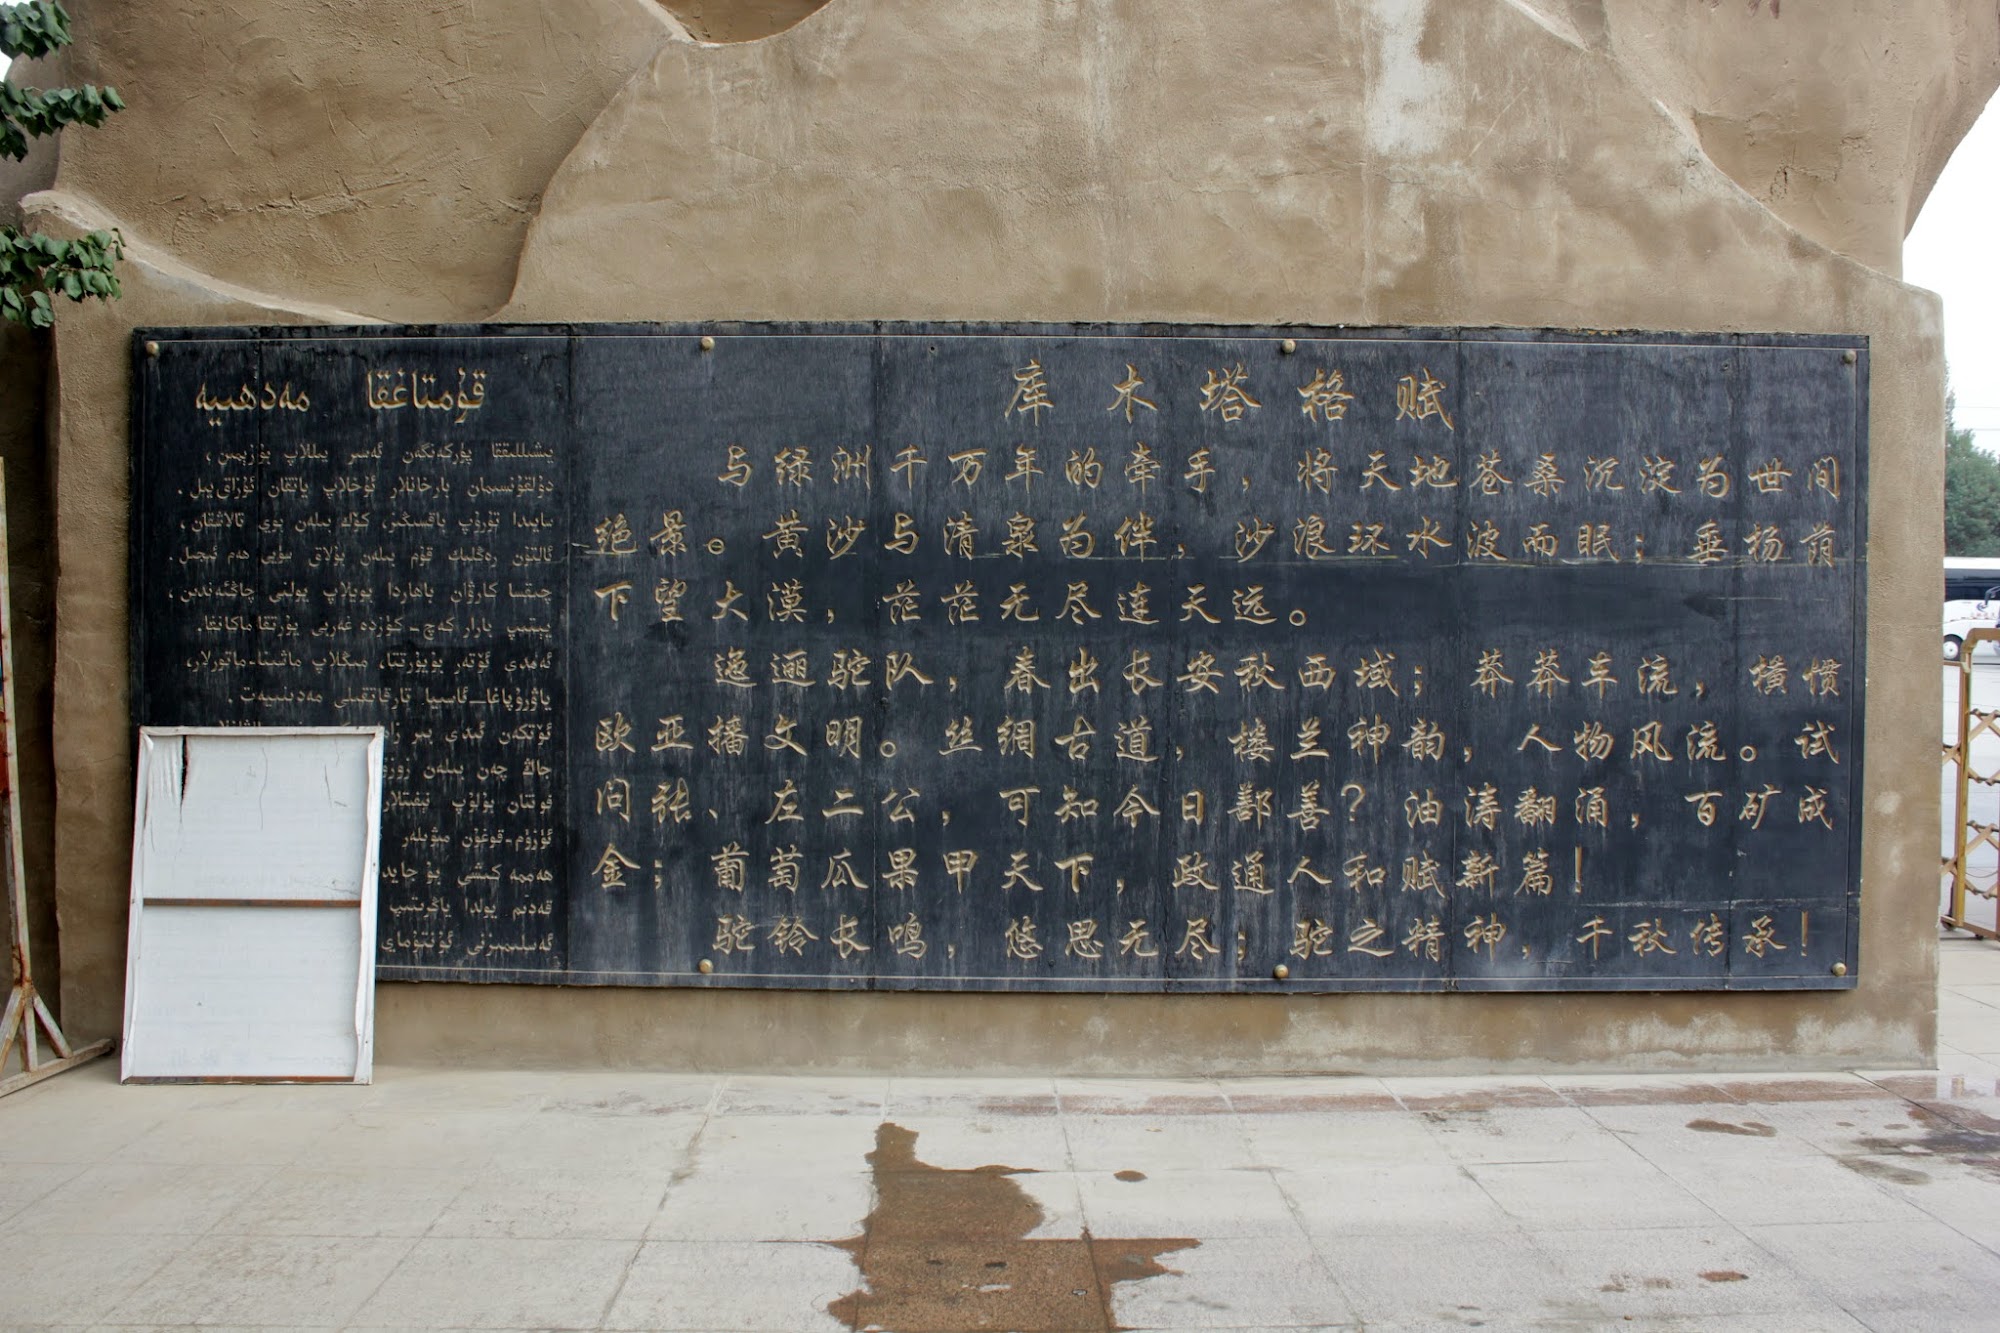 قۇمتاغقا مەدھىيە
يېشىللىققا پۈركەنگەن ئەسىر يىللاپ يۈزىمىن،
دولقۇنسىمان بارخانلار ئۇخلاپ ياتقان ئۇزاق يىل.
سايىدا تۇرۇپ باقسىڭىز، كۆلە بىلەن بوي تالاشقان،
ئالتۇن رەڭلىك قۇم بىلەن بۇلاق سۈيى ھەم ئىجىل.
چىقسا كارۋان باھاردا بويلاپ يولنى چاڭئەندىن،
يېتىپ بارار كەچ-كۈزدە غەربى يۇرتقا ماكانقا.
ئەمدى ئۆتەر بۇ يۇرتتا، مىڭلاپ ماشىنا-ماتورلار،
ياۋرۇپاغا-ئاسىيا تارقاتقىلى مەدىنىيەت.
ئۆتكەن ئەمدى بىر
جاڭ چەن بىلەن زوزو
قۇتتان بولۇپ نېفىتلار
ئۈزۈم-قوغۇن مېۋىلەر
ھەممە كىشى بۇ جايد
قەدىم يولدا ياڭرىتىپ
ئەسلىمىزنى ئۇنتۇماي
库木塔格赋
与绿洲千万年的牵手，将天地苍桑沉淀为世间
绝景。黄沙与清泉为伴，沙浪环水波而眠；垂杨荫
下望大漠，茫茫无尽连天远。
迤逦驼队，春出长安秋西域；莽莽车流，横惯
欧亚播文明。丝绸古道，楼兰神韵，人物风流。试
问张、左二公，可知今日鄯善？油涛翻涌，百矿成
金；葡萄瓜果甲天下，政通人和赋新篇！
驼铃长鸣，悠思无尽；驼之精神，千秋传承！